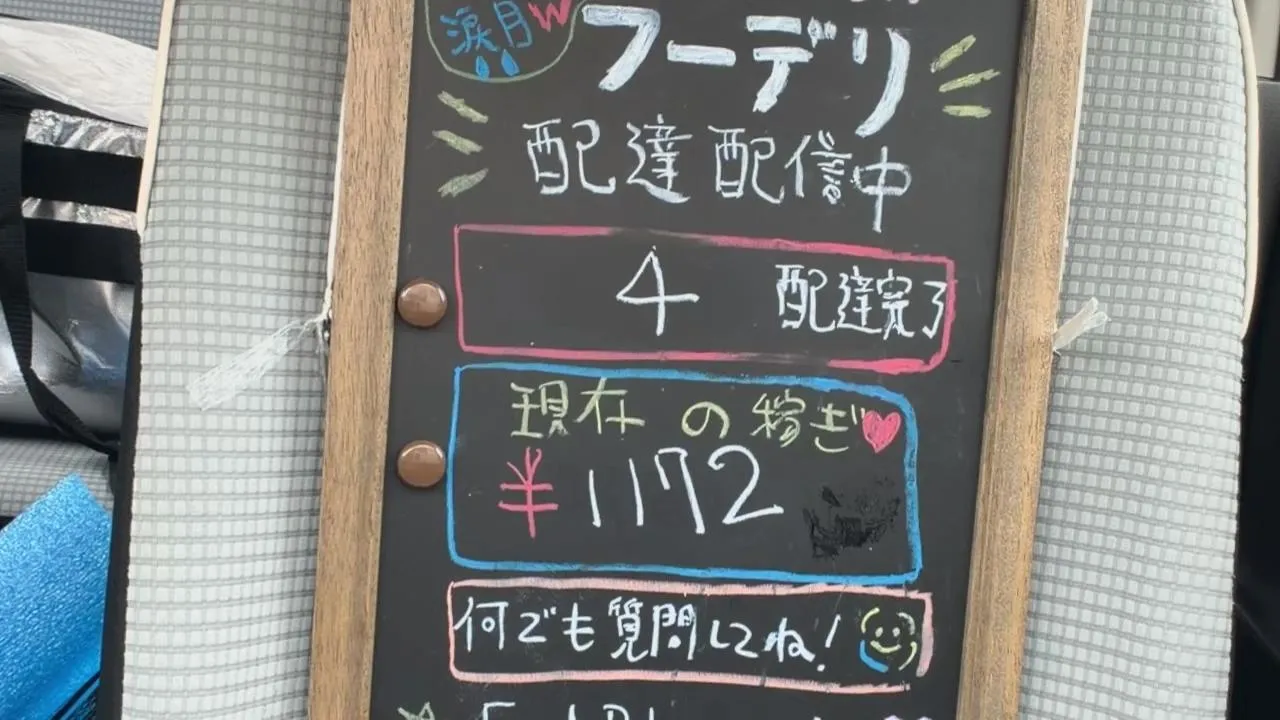 涙月W
フーデリ
配達配信中
4 配達完了
現在の稼ぎ
¥1172
何でも質問してね!